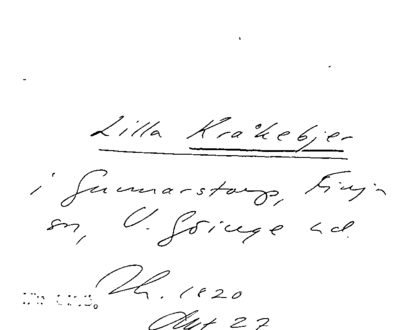 Lilla Kråkebjer
i Gunnarstorp, Finja
sn, V. Göinge hd.
Th. 1820
Akt 27